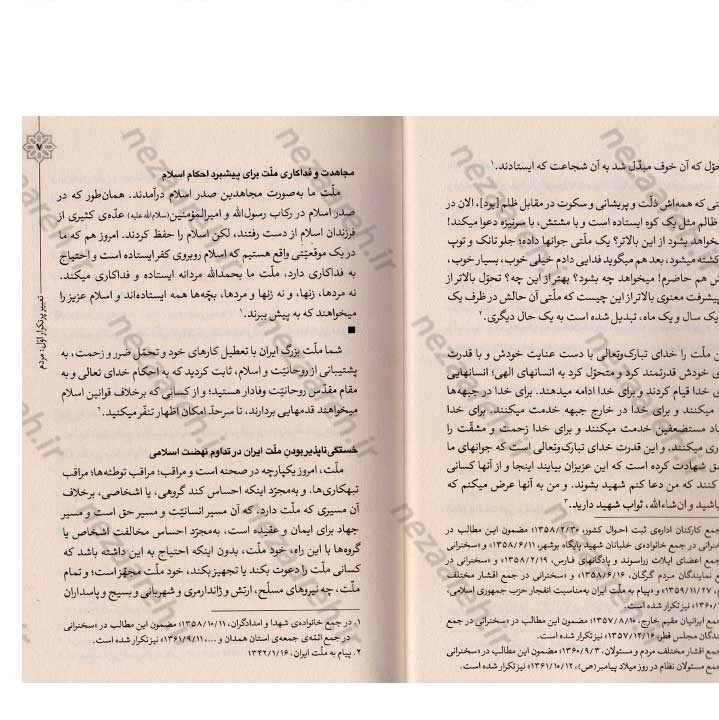 حوّل که آن خوف مبدّل شد به آن شجاعت که ایستادند.۱
تی که همه‌اش ذلّت و پریشانی و سکوت در مقابل ظلم [بود]، الان در
ظالم مثل یک کوه ایستاده است و با مشتش، با سرنیزه دعوا میکند!
خواهد بشود از این بالاتر؟ یک ملّتی جوانها داده؛ جلو تانک و توپ
کشته میشود، بعد هم میگوید فدایی دادم خیلی خوب، بسیار خوب،
ش هم حاضرم! میخواهد چه بشود؟ بهتر از این چه؟ تحوّل بالاتر از
پیشرفت معنوی بالاتر از این چیست که ملّتی آن حالش در ظرف یک
یک سال و یک ماه، تبدیل شده است به یک حال دیگری.۲
ن ملّت را خدای تبارک‌وتعالی با دست عنایت خودش و با قدرت
ی خودش قدرتمند کرد و متحوّل کرد به انسانهای الهی؛ انسانهایی
ی خدا قیام کردند و برای خدا ادامه میدهند. برای خدا در جبهه‌ها
میکنند و برای خدا در خارج جبهه خدمت میکنند. برای خدا
اد مستضعفین خدمت میکنند و برای خدا زحمت و مشقّت را
ری میکنند. و این قدرت خدای تبارک‌وتعالی است که جوانهای ما
ق شهادت کرده است که این عزیزان بیایند اینجا و از آنها کسانی
کنند که من دعا کنم شهید بشوند. و من به آنها عرض میکنم که
باشید و ان‌شاءالله، ثواب شهید دارید.۳
جمع کارکنان اداره‌ی ثبت احوال کشور، ۱۳۵۸/۲/۳۰؛ مضمون این مطالب در
خنرانی در جمع خانواده‌ی خلبانان شهید پایگاه بوشهر، ۱۳۵۸/۶/۱۱» و «سخنرانی
جمع اعضای ایلات زراسوند و پادگانهای فارس، ۱۳۵۸/۲/۱۹»، «سخنرانی در
ع نمایندگان مردم گرگان، ۱۳۵۸/۶/۱۶» و «سخنرانی در جمع اقشار مختلف
، ۱۳۵۹/۱۱/۲۷» و «پیام به ملّت ایران به‌مناسبت انفجار حزب جمهوری اسلامی،
۱۳۶۰/» نیز تکرار شده است.
جمع ایرانیان مقیم خارج، ۱۳۵۷/۸/۱۰؛ مضمون این مطالب در «سخنرانی در جمع
ندگان مجلس قطر، ۱۳۵۷/۱۲/۱۶» نیز تکرار شده است.
جمع اقشار مختلف مردم و مسئولان، ۱۳۶۰/۹/۳؛ مضمون این مطالب در «سخنرانی
جمع مسئولان نظام در روز میلاد پیامبر(ص)، ۱۳۶۱/۱۰/۱۲» نیز تکرار شده است.
۷
تعبیر پرتکرار اوّل: مردم
مجاهدت و فداکاری ملّت برای پیشبرد احکام اسلام
ملّت ما به‌صورت مجاهدین صدر اسلام درآمدند. همان‌طور که در
صدر اسلام در رکاب رسول‌الله و امیرالمؤمنین(سلام‌الله علیه) عدّه‌ی کثیری از
فرزندان اسلام از دست رفتند، لکن اسلام را حفظ کردند. امروز هم که ما
در یک موقعیّتی واقع هستیم که اسلام روبروی کفر ایستاده است و احتیاج
به فداکاری دارد، ملّت ما بحمدالله مردانه ایستاده و فداکاری میکند.
نه مردها، زنها، و نه زنها و مردها، بچّه‌ها همه ایستاده‌اند و اسلام عزیز را
میخواهند که به پیش ببرند.۱
شما ملّت بزرگ ایران با تعطیل کارهای خود و تحمّل ضرر و زحمت، به
پشتیبانی از روحانیّت و اسلام، ثابت کردید که به احکام خدای تعالی و به
مقام مقدّس روحانیّت وفادار هستید؛ و از کسانی که برخلاف قوانین اسلام
میخواهند قدمهایی بردارند، تا سرحدّ امکان اظهار تنفّر میکنید.۲
خستگی‌ناپذیر بودن ملّت ایران در تداوم نهضت اسلامی
ملّت، امروز یکپارچه در صحنه است و مراقب؛ مراقب توطئه‌ها؛ مراقب
تبهکاری‌ها. و به‌مجرّد اینکه احساس کند گروهی، یا اشخاصی، برخلاف
آن مسیری که ملّت دارد، که آن مسیر انسانیّت و مسیر حق است و مسیر
جهاد برای ایمان و عقیده است، به‌مجرّد احساس مخالفت اشخاص یا
گروه‌ها با این راه، خود ملّت، بدون اینکه احتیاج به این داشته باشد که
کسانی ملّت را دعوت بکند یا تجهیز بکند، خود ملّت مجهّز است؛ و تمام
ملّت، چه نیروهای مسلّح، ارتش و ژاندارمری و شهربانی و بسیج و پاسداران
۱. در جمع خانواده‌ی شهدا و امدادگران، ۱۳۵۸/۱۰/۱۱؛ مضمون این مطالب در «سخنرانی
در جمع ائمّه‌ی جمعه‌ی استان همدان و ...، ۱۳۶۱/۹/۱۱» نیز تکرار شده است.
۲. پیام به ملّت ایران، ۱۳۴۲/۱/۱۶
nezaareh.ir